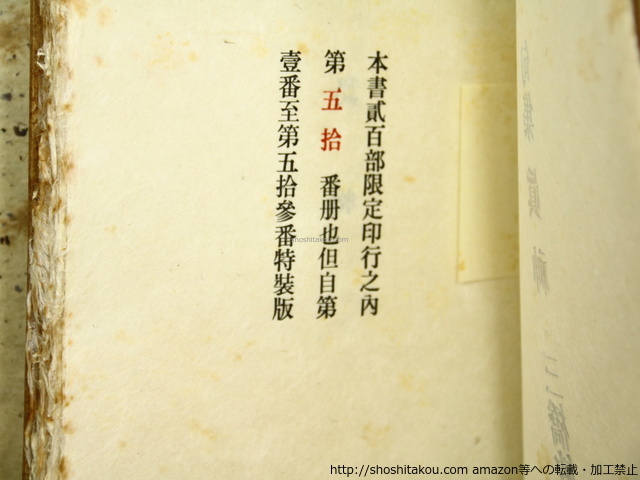 本書貳百部限定印行之內
第五拾番册也但自第
壹番至第五拾參番特裝版
shoshitakou.com
http://shoshitakou.com amazon等への転載・加工禁止